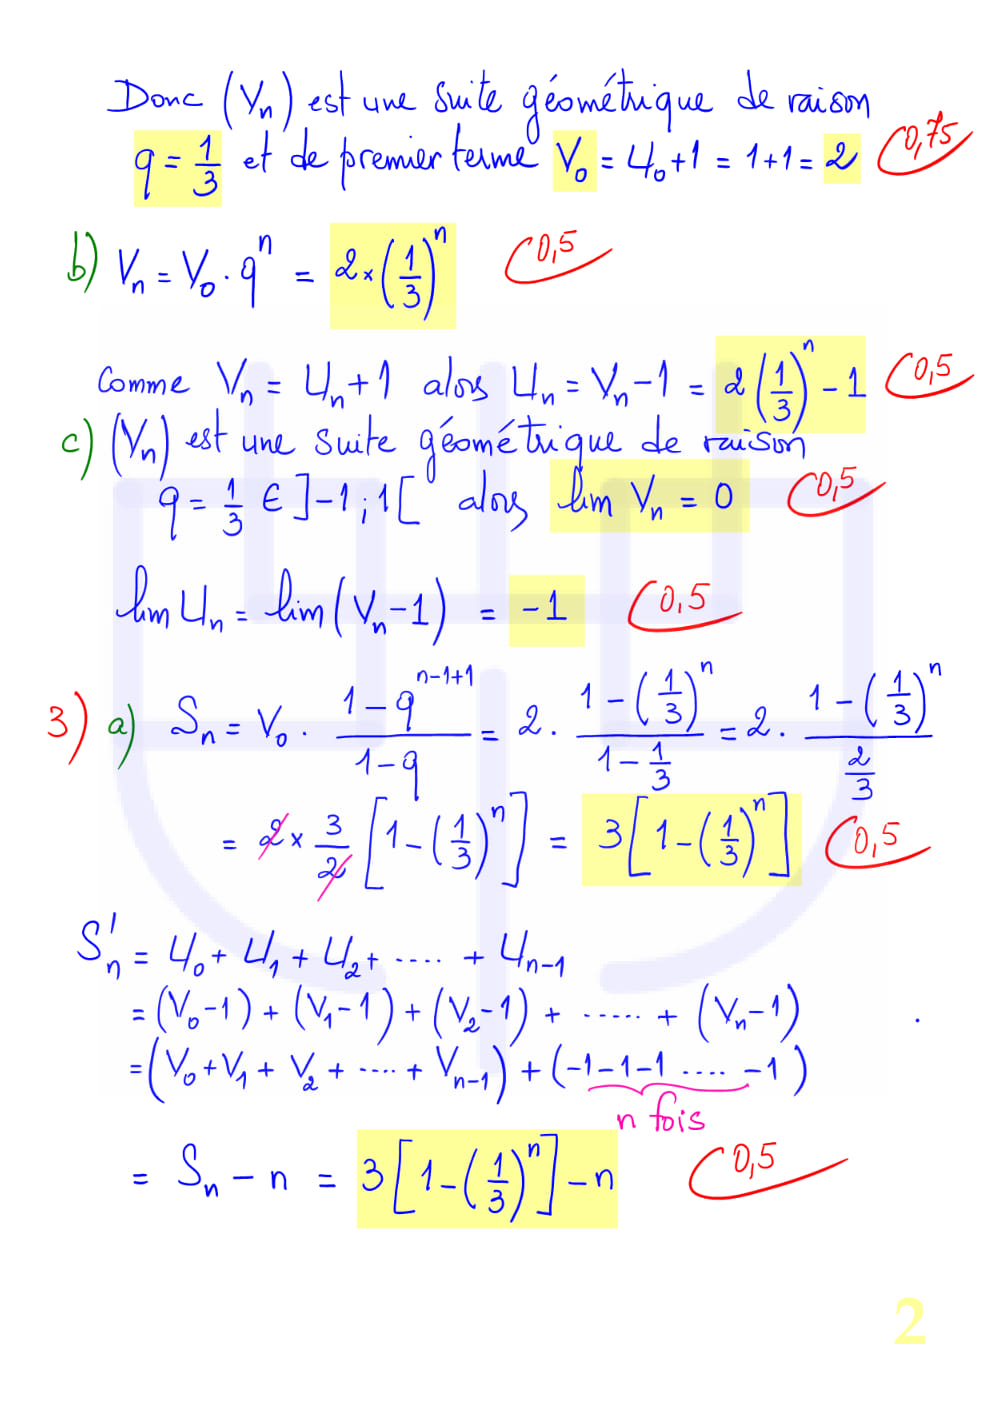 Donc (Vn) est une suite géométrique de raison
q = 1/3 et de premier terme V₀ = U₀+1 = 1+1 = 2 0,75
b) Vn = V₀ · qⁿ = 2×(1/3)ⁿ 0,5
Comme Vn = Un+1 alors Un = Vn−1 = 2(1/3)ⁿ − 1 0,5
c) (Vn) est une suite géométrique de raison
q = 1/3 ∈ ]−1;1[ alors lim Vn = 0 0,5
lim Un = lim(Vn−1) = −1 0,5
3) a) Sn = V₀ · (1−q^(n−1+1))/(1−q) = 2 · (1−(1/3)ⁿ)/(1−1/3) = 2 · (1−(1/3)ⁿ)/(2/3)
= 2 × 3/2 [1−(1/3)ⁿ] = 3[1−(1/3)ⁿ] 0,5
S'n = U₀ + U₁ + U₂ + .... + Un−1
= (V₀−1) + (V₁−1) + (V₂−1) + ..... + (Vn−1) .
= (V₀+V₁ + V₂ + .... + Vn−1) + (−1−1−1 .... −1)
n fois
= Sn − n = 3[1−(1/3)ⁿ]−n 0,5
2